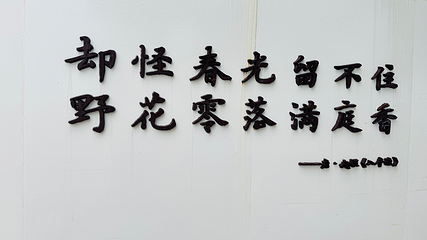 却怪春光留不住
野花零落满庭香